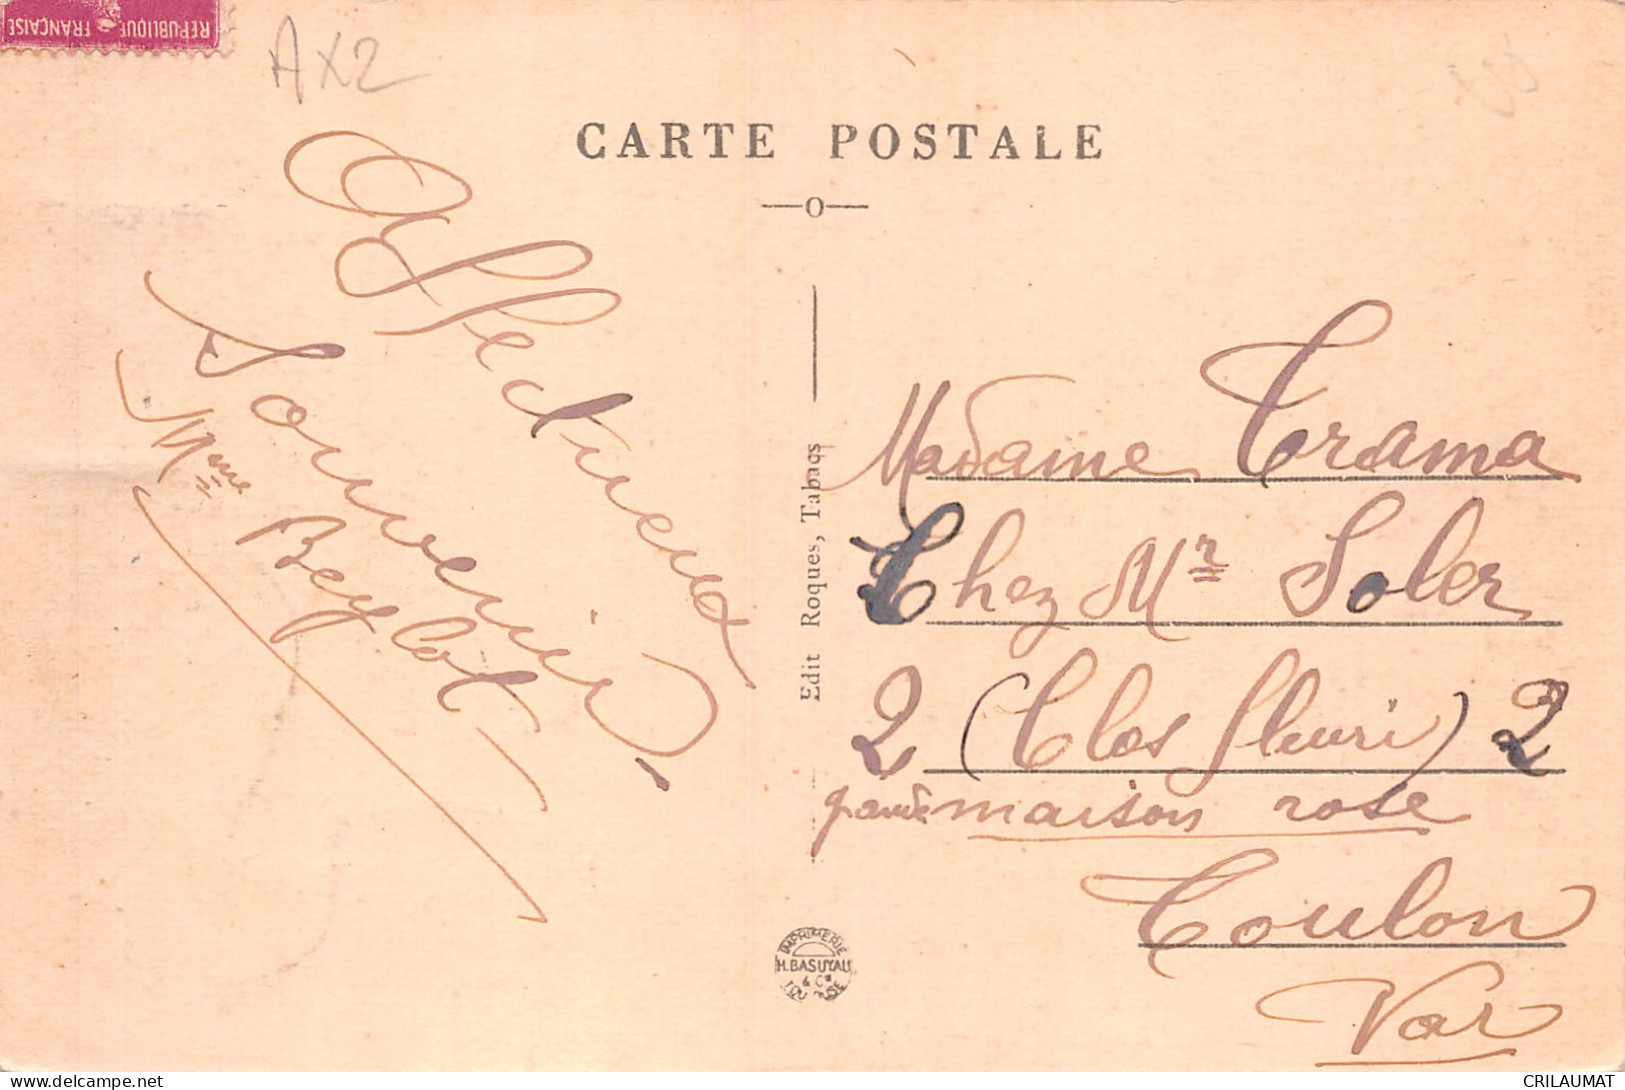 REPUBLIQUE FRANÇAISE
AX2
CARTE POSTALE
Affectueux
Souvenir.
Mme Beylot
Edit Roques, Tabacs
Madame Trama
Chez Mr Soler
2 (Clos fleuri) 2
maison rose
Toulon
Var
IMPRIMERIE
H. BASUYAU
& Cie
TOULOUSE
delcampe.net
CRILAUMAT